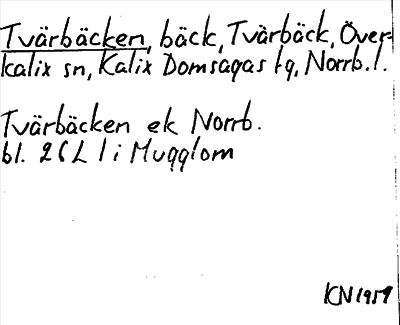 Tvärbäcken, bäck, Tvärbäck, Över-
kalix sn, Kalix Domsagas tg, Norrb. l.
Tvärbäcken ek Norrb.
bl. 26 L 1 i Mugglom
KN 1959